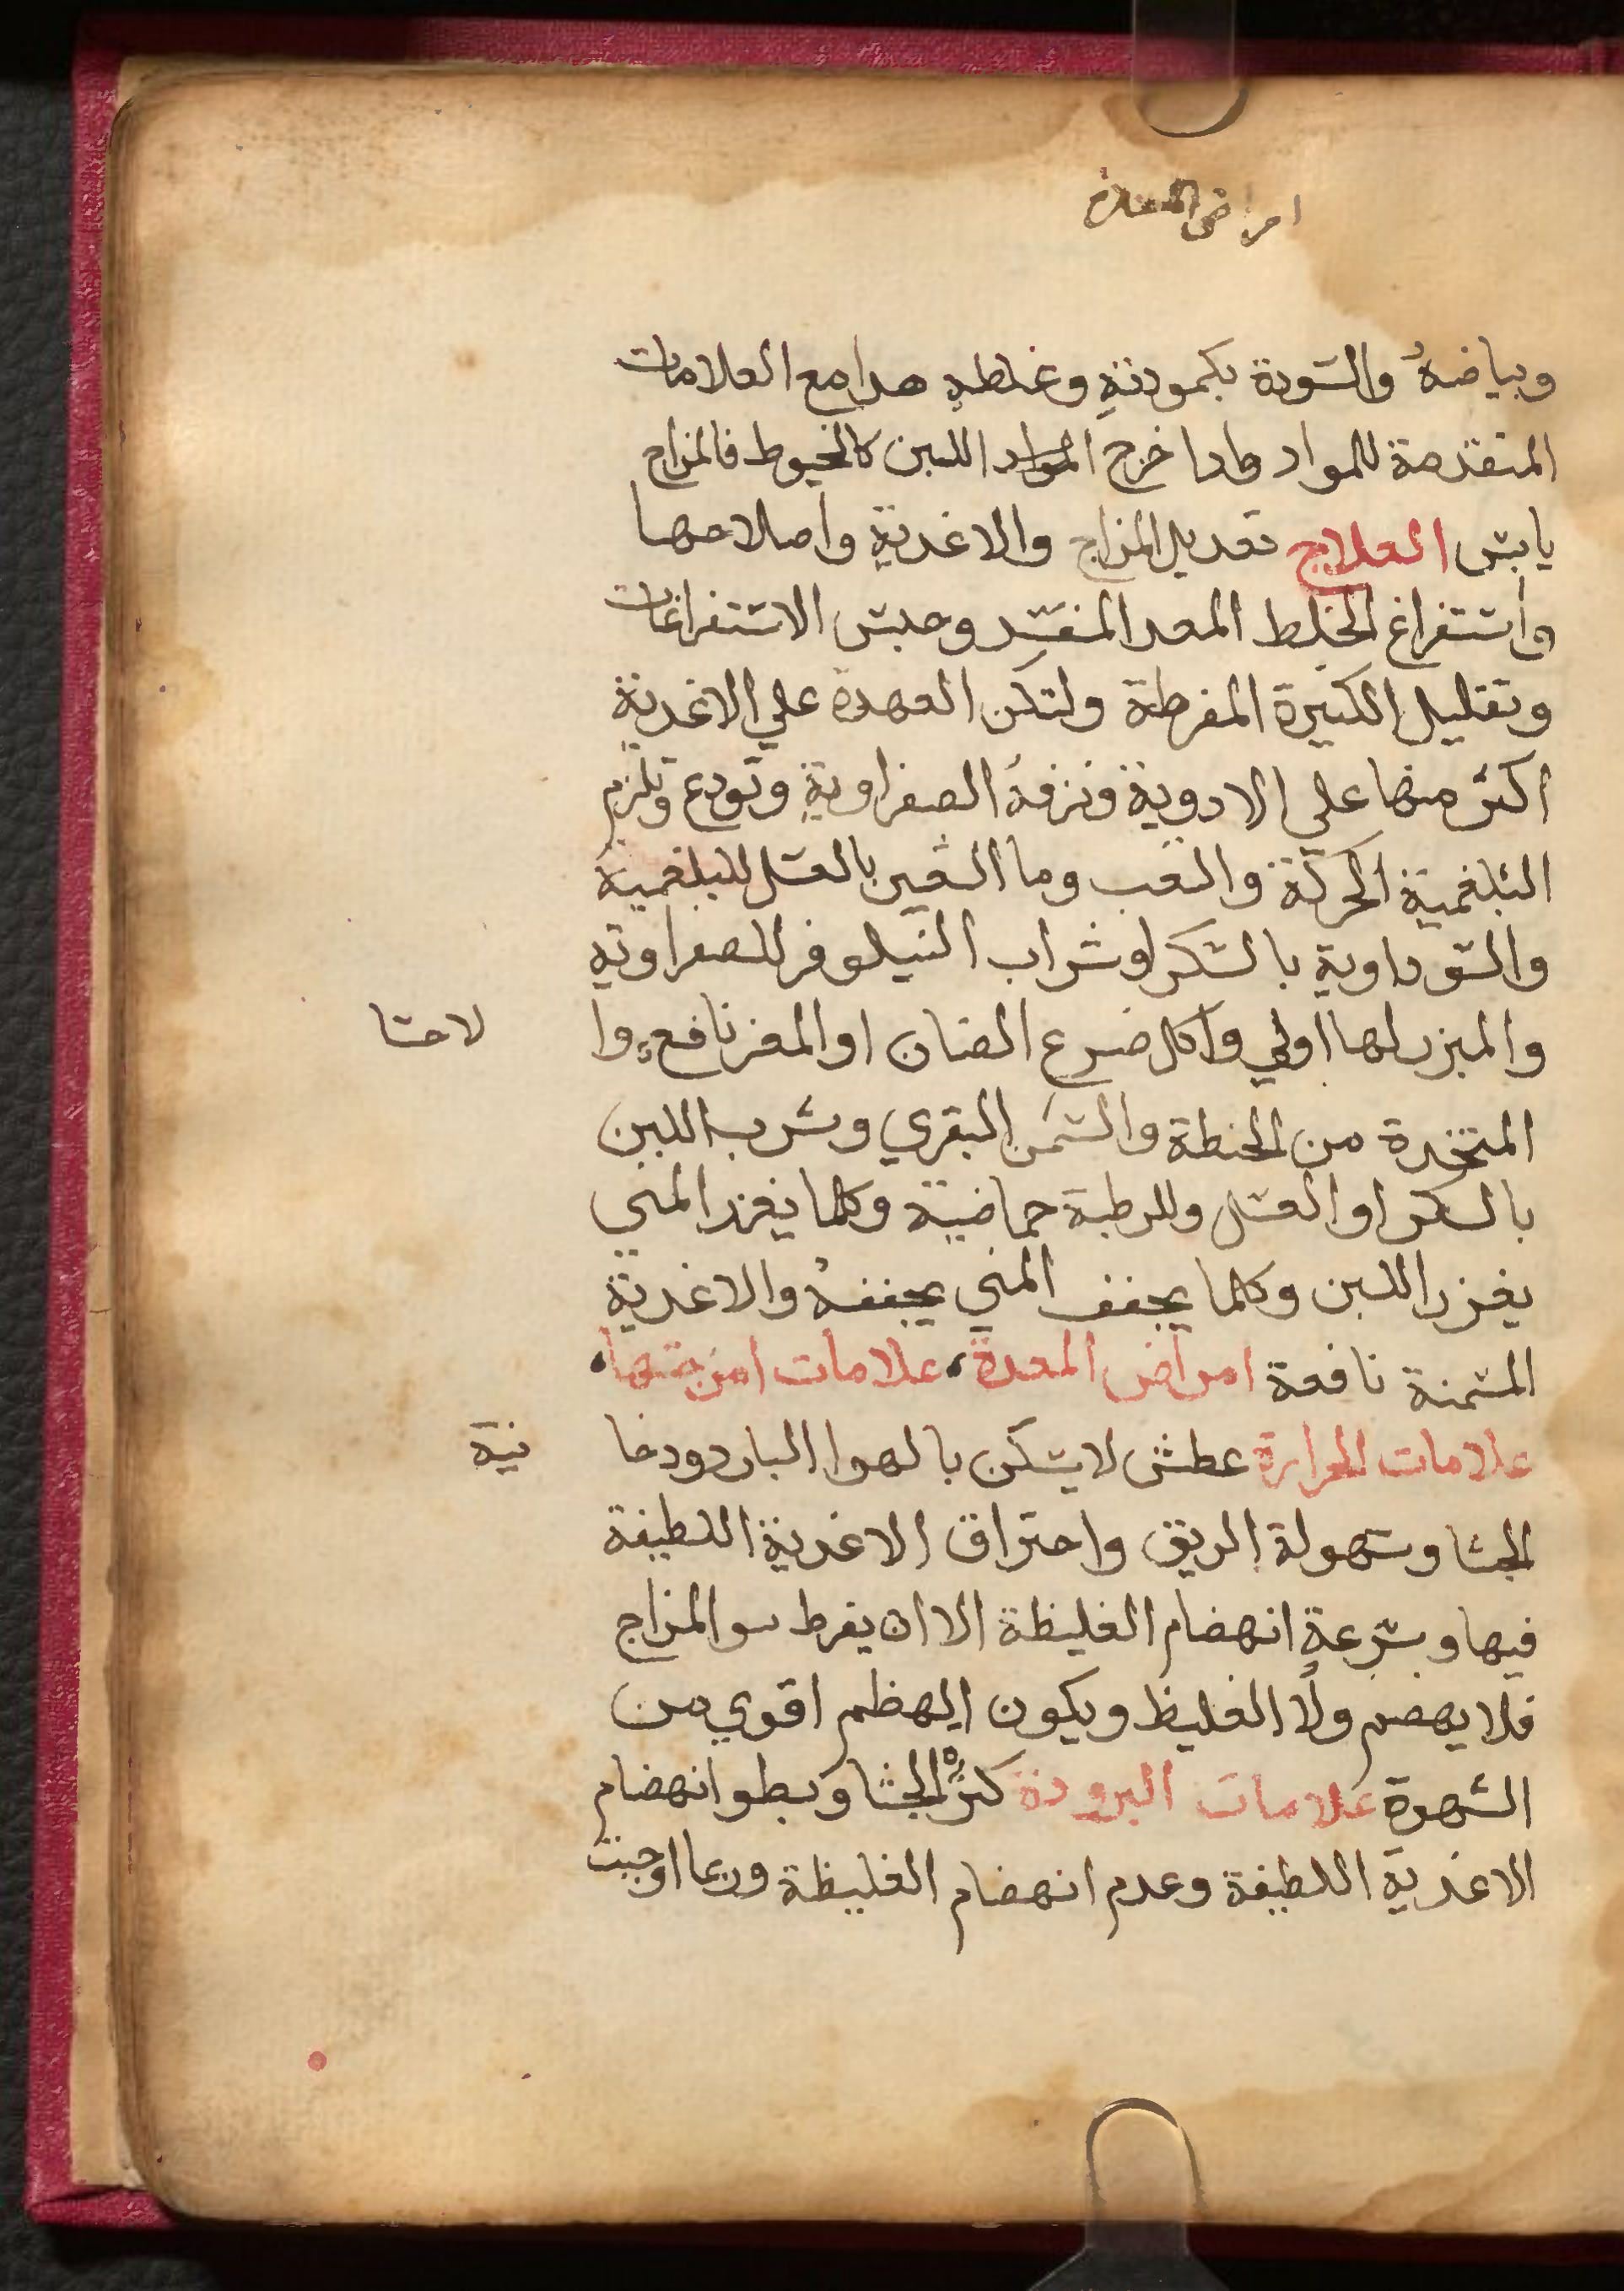 امراض المعدة
وبياضهُ والسودة بكمودتهِ وغلطهِ هدا مع العلامات
المتقدمة للمواد وادا خرج المواد اللبن كالخيوط فالمزاج
يابس العلاج تعديل المزاج والاغدية واصلاحها
واستفراغ الخلط المعد المفسد وحبس الاستفراغات
وتقليل الكثيرة المفرطة ولتكن العهدة علي الاغدية
اكثر منها علي الادوية وترفهُ الصفراوية وتودع وتلزم
البلغمية الحركة والتعب وما الشعير بالعسل للبلغمية
والسوداوية بالسكر او شراب النيلوفر للصفراوية
والمبزر لها اولي واكل ضرع الضان او المعز نافع وا لاحسا
المتخدة من الحنطة والسمن البقري وشرب اللبن
بالسكر او العسل وللرطبة حماضية وكلما يغزر المني
يغزر اللبن وكلما يجفف المني يجففهُ والاغدية
المسمنة نافعة امراض المعدة، علامات امزجتها،
علامات الحرارة عطش لا يسكن بالهوا البارد ودخا نية
الجشا وسهولة الريق واحتراق الاغدية اللطيفة
فيها وسرعة انهضام الغليظة الا ان يفرط سو المزاج
فلا يهضم ولا الغليظ ويكون الهظم اقوي من
الشهوة علامات البرودة كثرة الجشا وبطو انهضام
الاغدية اللطيفة وعدم انهضام الغليظة وربما اوجبت